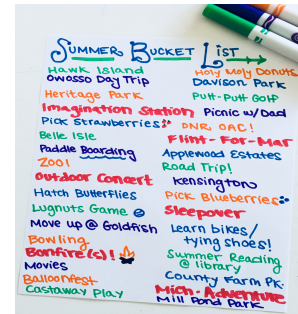 Summer Bucket List
Hawk Island
Owosso Day Trip
Heritage Park
Imagination Station
Pick Strawberries
Belle Isle
Paddle Boarding
Zoo!
Outdoor Concert
Hatch Butterflies
Lugnuts Game
Move up @ Goldfish
Bowling
Bonfire(s)!
Movies
Balloonfest
Castaway Play
Holy Moly Donuts
Davison Park
Putt-Putt Golf
Picnic w/Dad
DNR OAC!
Flint-For-Mar
Applewood Estates
Road Trip!
Kensington
Pick Blueberries
Sleepover
Learn bikes/
tying shoes!
Summer Reading
@ library
County Farm Pk.
Mich-Adventure
Mill Pond Park